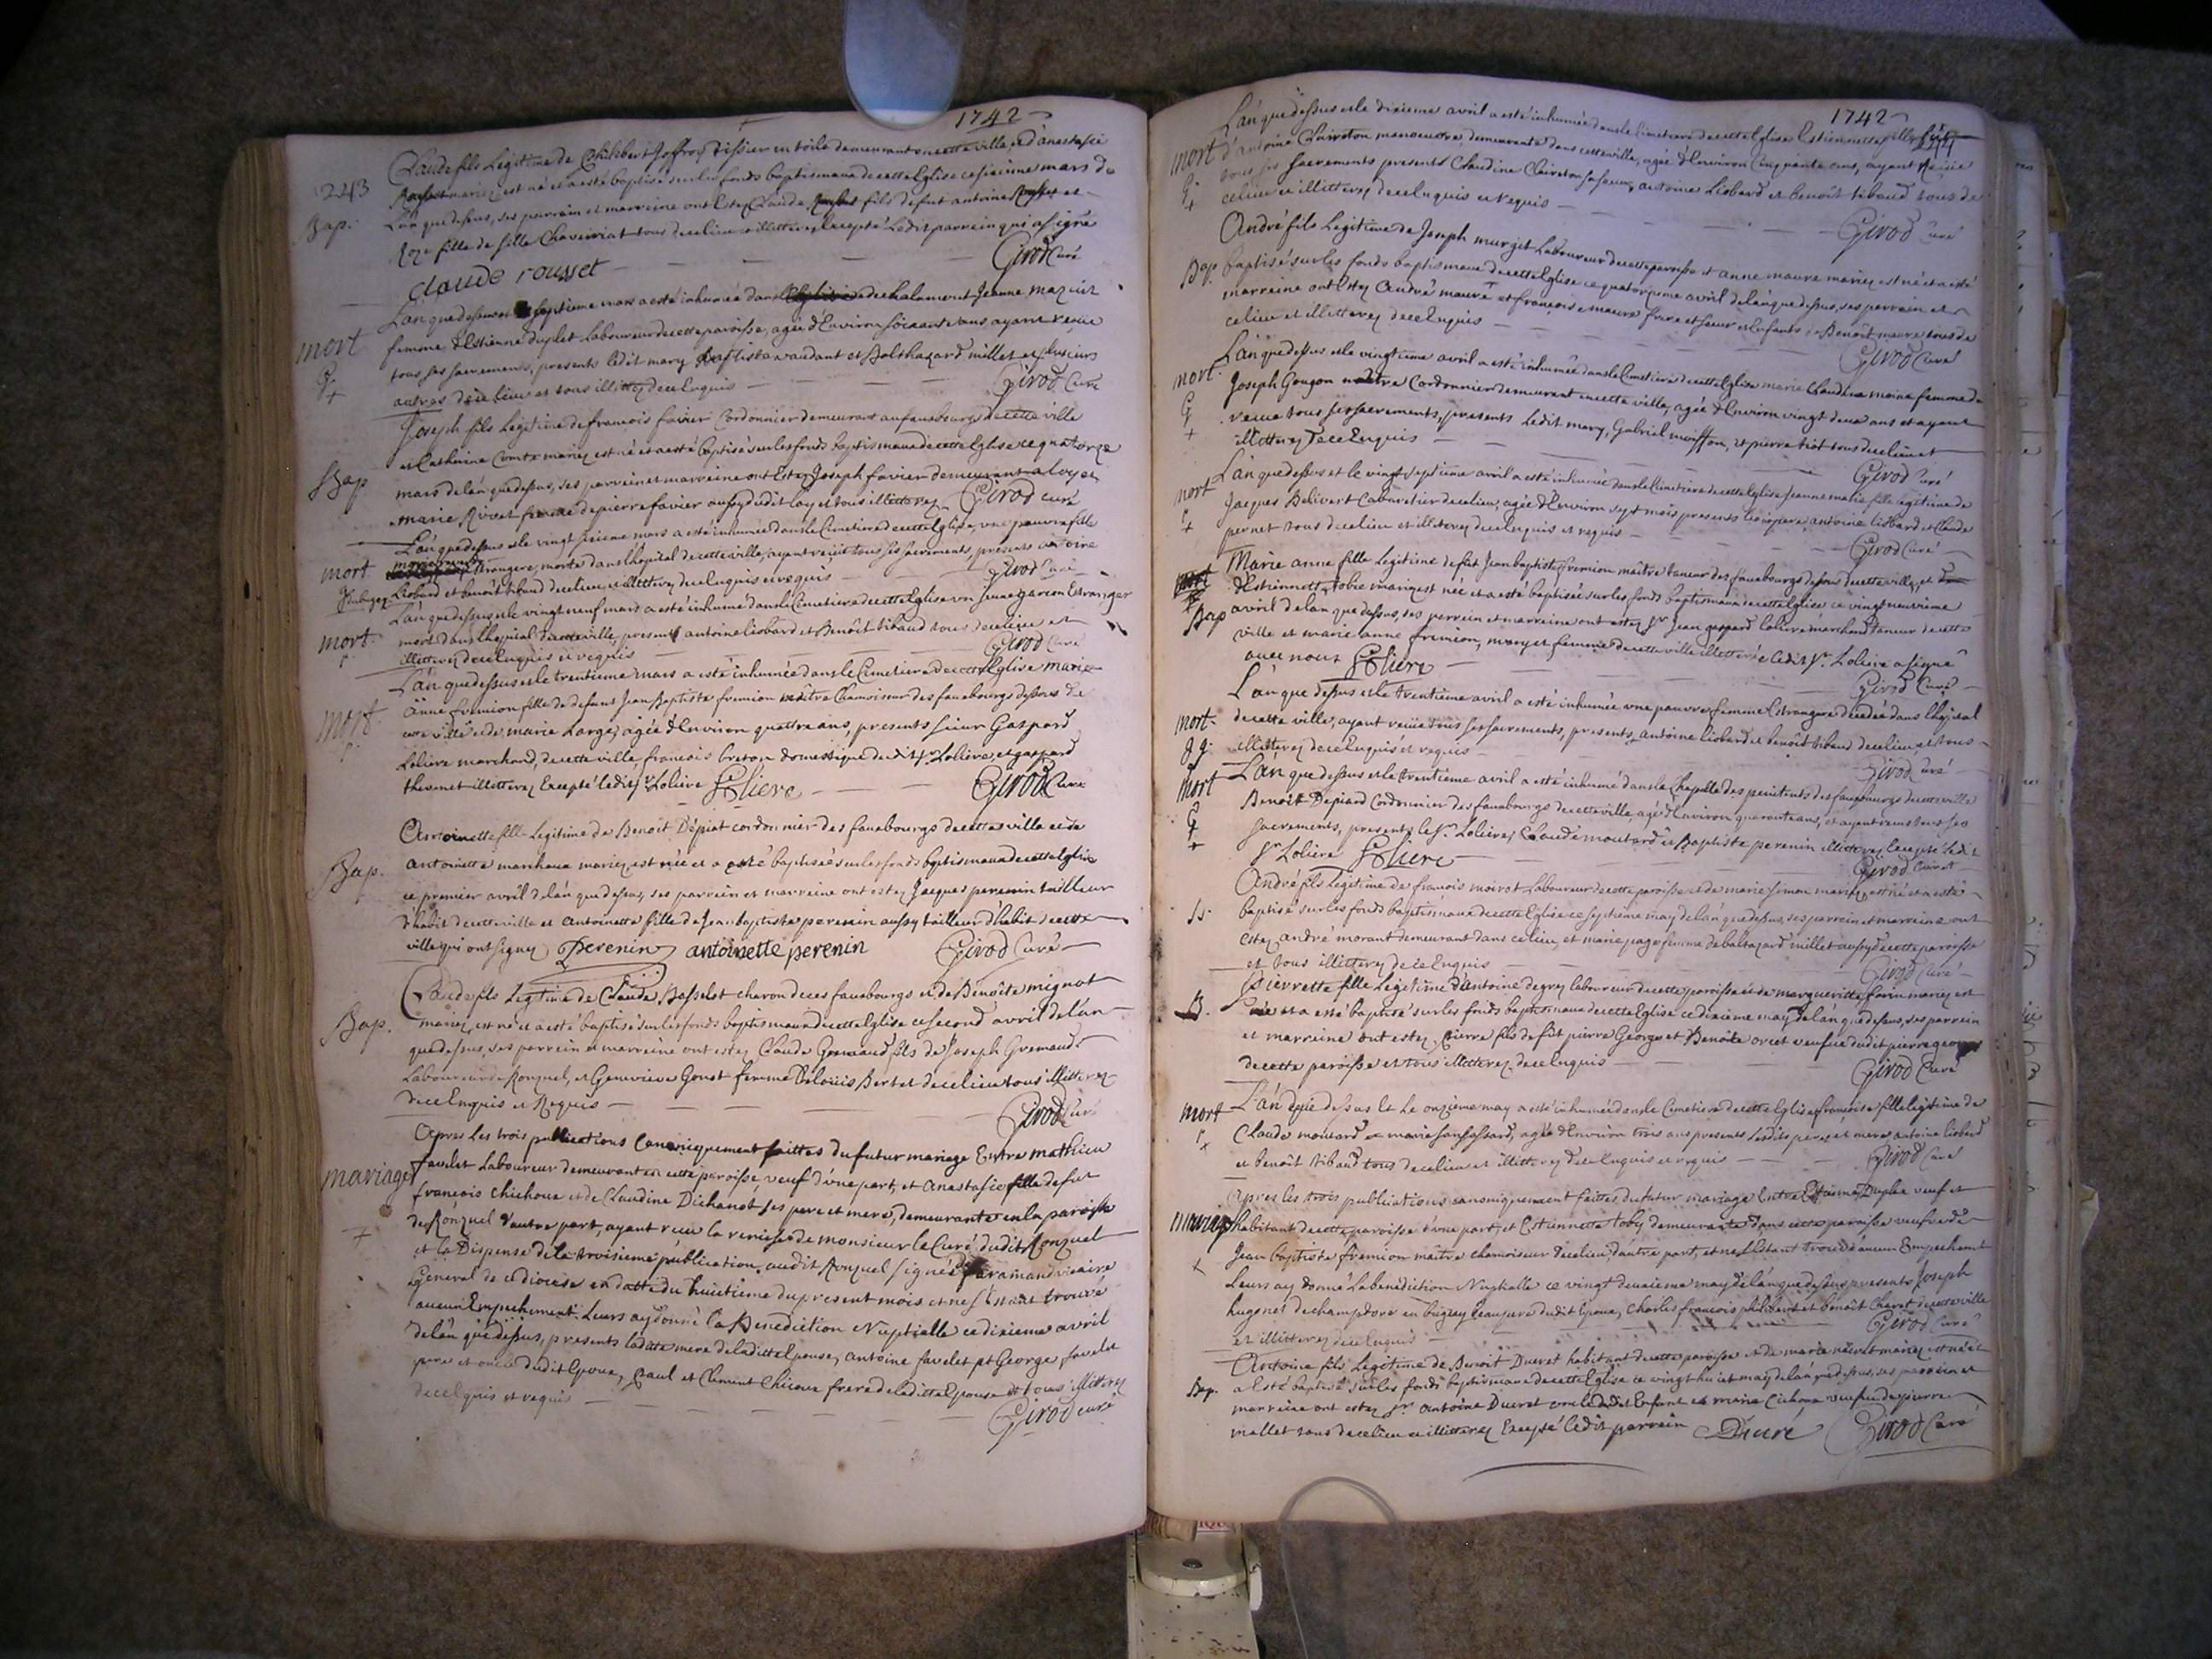 1742
243
Claude fils Legitime de Philibert Joffroy tissier en toile demeurant en cette ville, et d'anastasie
Rousset mariez est né et a esté baptisé sur les fonds baptismaux de cette Eglise ce sixieme mars de
Bap.
L'an que dessus, ses parrein et marreine ont Estez Claude Rousset fils de fut antoine Rousset et
fille de Chaveiriat tous de ce lieu illitterez Excepté Ledit parrein qui a signé
claude rousset
Girod Curé
L'an que dessus et le septieme mars a esté inhumée dans de chalamont Jeanne mazuir
mort
femme d'Estienne duplet Laboureur de cette paroisse, agée d'Environ soixante ans ayant receue
tous ses sacrements, presents ledit mary Baptiste vaudant et Balthazard millet et plusieurs
autres de ce lieu et tous illitterez de ce Enquis
Girod Curé
Joseph fils Legitime de francois favier Cordonnier demeurant au fauxbourg de cette ville
et Catherine Comte mariez est né et a esté baptisé sur les fonds baptismaux de cette Eglise ce quatorze
Bap
mars de l'an que dessus, ses parrein et marreine ont Estez Joseph favier demeurant a loyes
marie Rivet femme de pierre favier aussy dudit loyes tous illitterez
Girod curé
L'an que dessus et le vingt sixieme mars a esté inhumée dans le Cimetiere de cette Eglise, une pauvre fille
mort
Etrangere, morte dans l'hopital de cette ville, ayant reçüe tous ses sacrements, presents antoine
Liobard et benoît tibaud de ce lieu et illitterez de ce Enquis et requis
Girod Curé
L'an que dessus et le vingt neuf mars a esté inhumé dans le Cimetiere de cette Eglise un Jeune garcon Estranger
mort
mort dans l'hopital de cette ville, presents antoine liobard et Benoît tibaud tous de ce lieu et
illitterez de ce Enquis et requis
Girod Curé
L'an que dessus et le trentieme mars a esté inhumée dans le Cimetiere de cette Eglise marie
mort
anne fremion fille de defunt Jean Baptiste fremion maître Chamoiseur des fauxbourgs dessous de
cette ville et de marie Large, agée d'Environ quattre ans, presents sieur Gaspard
Loliere marchand, de cette ville, francois breton domestique dudit sr Loliere, et gaspard
thevenet illitterez Excepté ledit sr Loliere GLoliere
Girod Curé
Antoinette fille Legitime de Benoit Dépiat cordonnier des fauxbourgs de cette ville et de
antoinette marcheux mariez est née et a esté baptisée sur les fonds baptismaux de cette Eglise
Bap.
ce premier avril de l'an que dessus, ses parrein et marreine ont estez Jacques perenin tailleur
d'habit de cette ville et Antoinette fille de Jean baptiste perenin aussy tailleur d'habit de cette
ville qui ont signez Perenin antoinette perenin
Girod Curé
Claude fils Legitime de Claude Basselet charon de ces fauxbourgs et de Benoîte mignot
Bap.
mariez, est né et a esté baptisé sur les fonds baptismaux de cette Eglise ce second avril de l'an
que dessus, ses parrein et marreine ont estez Claude Gremaud fils de Joseph Gremaud
Laboureur de Ronzuel, et Genevieve Gonet femme de Loüis Bertet de ce lieu tous illitterez
de ce Enquis et Requis
Girod Curé
Apres les trois publications Canoniquement faittes du futur mariage Entre mathieu
mariage
favelet Laboureur demeurant en cette paroisse, veuf d'une part, et anastasie fille de fut
francois chichoux et de Claudine Dichanot ses pere et mere, demeurante en la paroisse
de Ronzuel d'autre part, ayant receu la remise de monsieur le Curé dudit Ronzuel
et la Dispense de la troisieme publication audit Ronzuel signée vicaire
General de ce diocese en datte du huitieme du present mois et ne s'Etant trouvé
aucun Empechement Leurs ay donné la Benediction Nuptialle ce dixieme avril
de l'an que dessus, presents ladite mere de ladite Epouse, antoine favelet et George favelet
pere et oncle dudit Epoux, Paul et Clement Chicoux frere de ladite Epouse et tous illitterez
de ce enquis et requis
Girod curé
1742
L'an que dessus et le dixieme avril a esté inhumée dans le Cimetiere de cette Eglise Estiennette fille
mort
d'antoine Clairoton manoeuvre, demeurante dans cette ville, agée d'Environ Cinquante ans, ayant Reçüe
tous ses sacrements presents Claudine Clairoton sa soeur, antoine Liobard et benoît tibaud tous de
ce lieu et illitterez de ce Enquis et requis
Girod Curé
André fils Legitime de Joseph murget Laboureur de cette paroisse et anne maure mariez est né et a esté
Bap.
baptisé sur les fonds baptismaux de cette Eglise ce quatorzieme avril de l'an que dessus, ses parrein et
marreine ont Estez André maure et francoise maure frere et soeur et Enfants de Benoit maure tous de
ce lieu et illitterez de ce Enquis
Girod Curé
L'an que dessus et le vingtieme avril a esté inhumée dans le Cimetiere de cette Eglise marie Claudine moine femme de
mort.
Joseph Gougon maître Cordonnier demeurant en cette ville, agée d'Environ vingt deux ans et ayant
receue tous ses sacrements, presents Ledit mary, Gabriel moisson, et pierre triot tous de ce lieu et
illitterez de ce Enquis
Girod Curé
L'an que dessus et le vingt septieme avril a esté inhumée dans le Cimetiere de cette Eglise Jeanne marie fille legitime de
mort
Jacques Belivert Cabaretier de ce lieu, agée d'Environ sept mois presents antoine liobard et Claude
pernet tous de ce lieu et illitterez de ce Enquis et requis
Girod Curé
Marie anne fille Legitime de fut Jean baptiste fremion maître taneur des fauxbourgs dessous de cette ville, et
d'Estiennette tobie mariez est née et a esté baptisée sur les fonds baptismaux de cette Eglise ce vingt neuvieme
Bap
avril de l'an que dessus, ses parrein et marreine ont estez sr Jean gaspard loliere marchand taneur de cette
ville et marie anne fremion, mary et femme de cette ville illitterée ledit sr Loliere a signé
avec nous GLoliere
Girod Curé
L'an que dessus et le trentieme avril a esté inhumée une pauvre femme Estrangere decedée dans l'hopital
mort.
de cette ville, ayant receüe tous ses sacrements, presents antoine liobard et benoît tibaud de ce lieu et tous
illitterez de ce Enquis et requis
Girod Curé
mort
L'an que dessus et le trentieme avril a esté inhumé dans la Chapelle des penitents des fauxbourgs de cette ville
Benoit Depiard Cordonnier des fauxbourgs de cette ville, agé d'Environ quarante ans, et ayant receus tous ses
sacrements, presents le sr Loliere, Claude moutard et Baptiste perenin illitterez Excepté ledit
sr Loliere GLoliere
Girod Curé
André fils Legitime de francois moirot Laboureur de cette paroisse et de marie simon mariez, est né et a esté
baptisé sur les fonds baptismaux de cette Eglise ce septieme may de l'an que dessus, ses parrein et marreine ont
estez andré morant demeurant dans ce lieu, et marie page femme de baltazard millet aussy de cette paroisse
et tous illitterez de ce Enquis
Girod Curé
Pierrette fille Legitime d'Antoine degrey laboureur de cette paroisse et de margueritte favin mariez est
B.
née et a esté baptisée sur les fonds baptismaux de cette Eglise ce dixieme may de l'an que dessus, ses parrein
et marreine ont estez, Pierre fils de fut pierre George et Benoîte orcet veufve dudit pierre george
de cette paroisse et tous illitterez de ce Enquis
Girod Curé
L'an que dessus et le onzieme may a esté inhumée dans le Cimetiere de cette Eglise francoise fille legitime de
mort
Claude moutard et marie agée d'Environ trois ans presents lesdits pere et mere antoine liobard
et benoît tibaud tous de ce lieu et illitterez de ce Enquis et requis
Girod Curé
Apres les trois publications canoniquement faittes du futur mariage Entre Estienne Duplex veuf et
mariage
habitant de cette paroisse d'une part, et Estiennette toby demeurante dans cette paroisse veufve de
Jean Baptiste fremion maître chamoiseur de ce lieu, d'autre part, et ne s'Estant trouvé aucun Empechement
Leurs ay donné La benediction Nuptialle ce vingt deuxieme may de l'an que dessus presents Joseph
hugonet de champdore en bugey beaupere dudit Epoux, Charles francois philibert et benoît Charet de cette ville
et illitterez de ce Enquis
Girod Curé
Antoine fils Legitime de Benoit Ducret habitant de cette paroisse et de marie mariez est né et
Bap.
a esté baptisé sur les fonds baptismaux de cette Eglise ce vingt huit may de l'an que dessus, ses parrein et
marreine ont estez sr antoine Ducret oncle dudit Enfant et marie Cichoux veufve de pierre
mallet tous de ce lieu et illitterez Excepté ledit parrein Ducré
Girod Curé